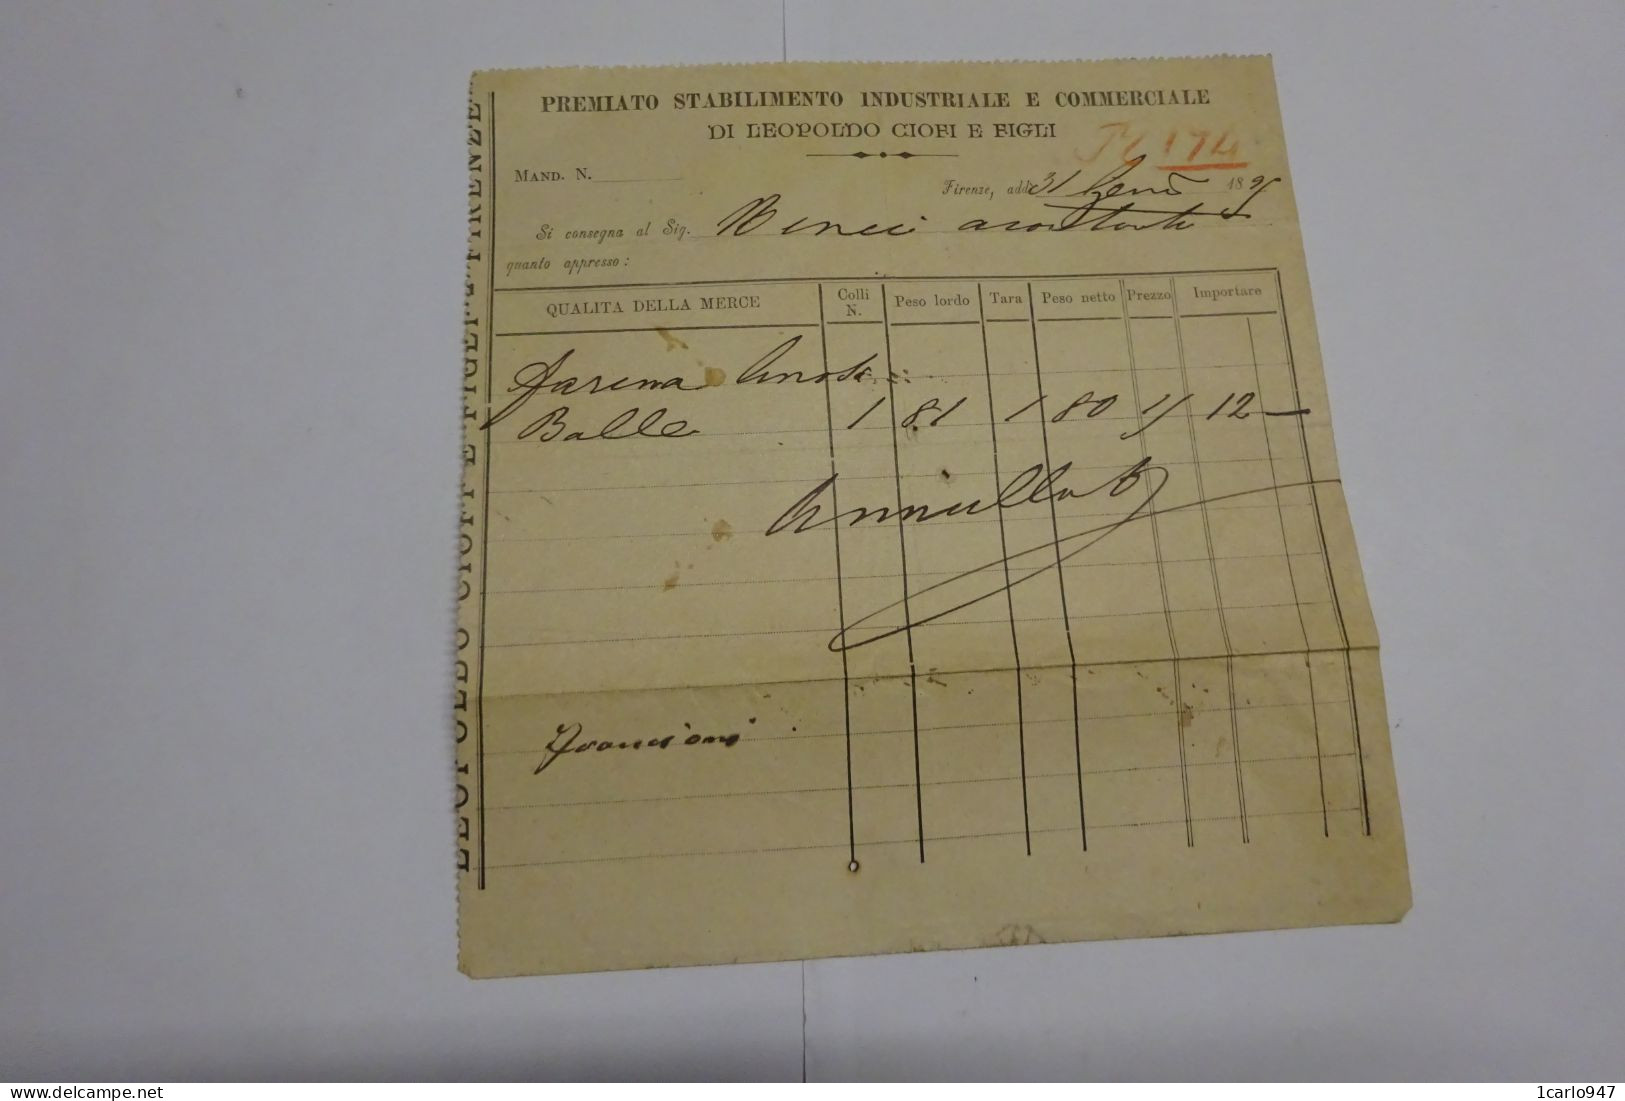 PREMIATO STABILIMENTO INDUSTRIALE E COMMERCIALE
DI LEOPOLDO CIOFI E FIGLI
174
MAND. N.
Firenze, addì 31 Genn 189
Si consegna al Sig.
quanto appresso:
QUALITA DELLA MERCE Colli N. Peso lordo Tara Peso netto Prezzo Importare
Farina
Balle 1 81 1 80 15 12 —
Annullato
Francioni
LEOPOLDO CIOFI E FIGLI "FIRENZE"
www.delcampe.net
1carlo947